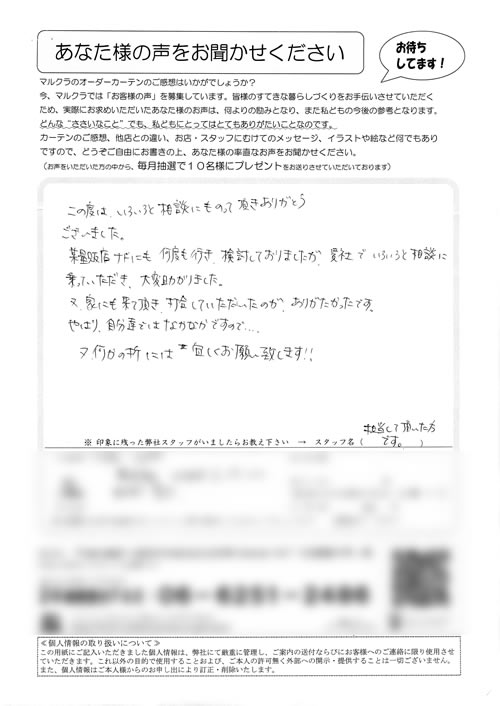 あなた様の声をお聞かせください
お待ち
してます！
マルクラのオーダーカーテンのご感想はいかがでしょうか？
今、マルクラでは「お客様の声」を募集しています。皆様のすてきな暮らしづくりをお手伝いさせていただく
ため、実際にお求めいただいたあなた様のお声は、何よりの励みとなり、また私どもの今後の参考となります。
どんな“ささいなこと”でも、私どもにとってはとてもありがたいことなのです。
カーテンのご感想、他店との違い、お店・スタッフにむけてのメッセージ、イラストや絵など何でもあり
ですので、どうぞご自由にお書きの上、あなた様の率直なお声をお聞かせください。
（お声をいただいた方の中から、毎月抽選で１０名様にプレゼントをお送りさせていただいております）
この度は、いろいろと相談にものって頂きありがとう
ございました。
量販店などにも何度も行き、検討しておりましたが、貴社でいろいろと相談に
乗っていただき、大変助かりました。
又、家にも来て頂き、採寸していただいたのが、ありがたかったです。
やはり、自分達ではなかなかですので…。
又何かの折には宜しくお願い致します!!
担当して頂いた方
です。
※ 印象に残った弊社スタッフがいましたらお教え下さい → スタッフ名（ ）
06-6251-2486
≪個人情報の取り扱いについて≫
この用紙にご記入いただきました個人情報は、弊社にて厳重に管理し、ご案内の送付ならびにお客様へのご連絡に限り使用させ
ていただきます。これ以外の目的で使用することおよび、ご本人の許可無く外部への開示・提供することは一切ございません。
また、個人情報はご本人様からのお申し出により訂正・削除いたします。